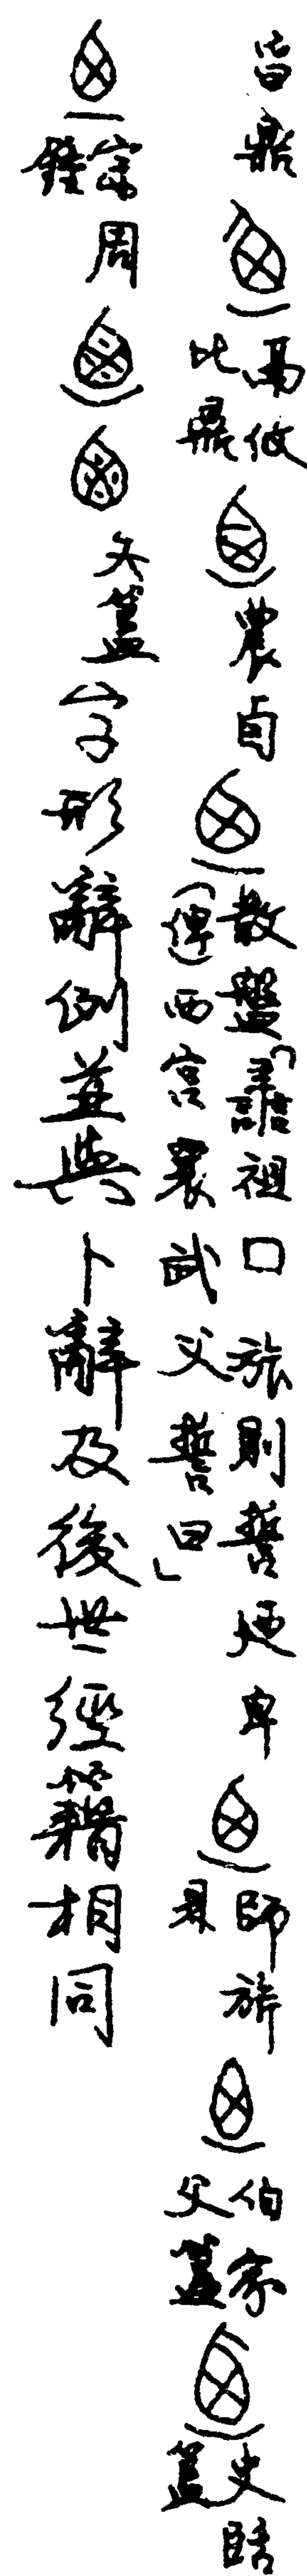 曶鼎鬲攸比鼎農卣散盤「祖口旅則誓廼卑(俾)西宮襄武父誓曰」師旂鼎伯家父簋史䛗簋
宗周鐘夨簋字形辭例並與卜辭及後世經籍相同